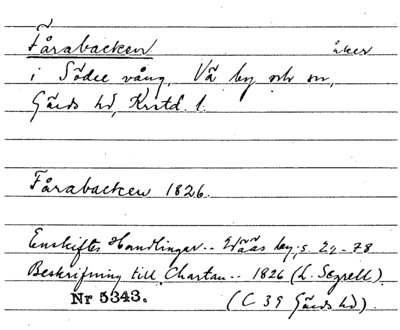 Fårabacken åker
i Södre vång, Vä by och sn,
Gärds hd, Kristd. l.
Fårabacken 1826.
Enskiftes Handlingar.. by, s. 27-78
Beskrifning till Chartan.. 1826 (L. Segrell).
Nr 5343. (C 39 Gärds hd).